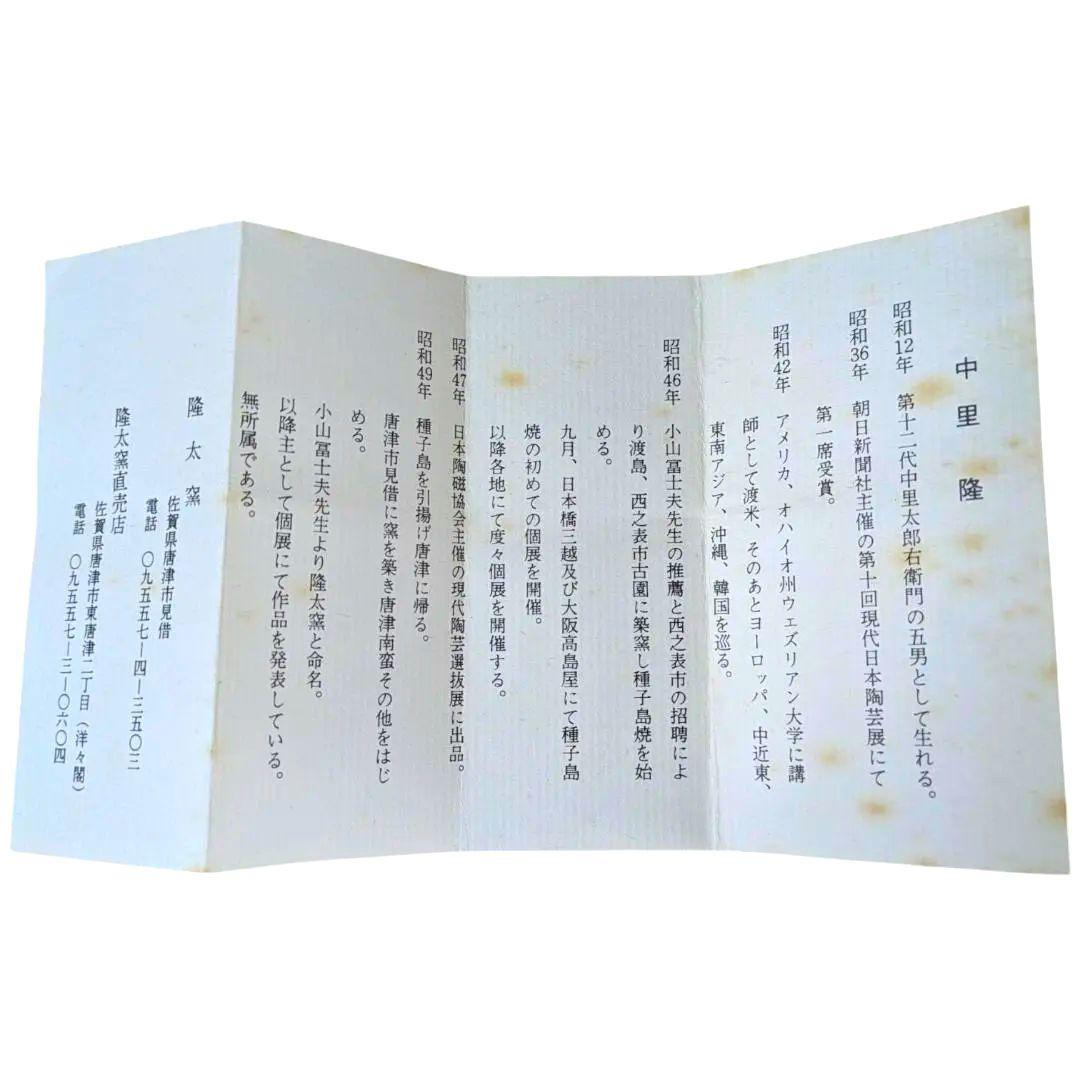 中里隆
昭和12年 第十二代中里太郎右衛門の五男として生れる。
昭和36年 朝日新聞社主催の第十回現代日本陶芸展にて
第一席受賞。
昭和42年 アメリカ、オハイオ州ウェズリアン大学に講
師として渡米、そのあとヨーロッパ、中近東、
東南アジア、沖縄、韓国を巡る。
昭和46年 小山冨士夫先生の推薦と西之表市の招聘によ
り渡島、西之表市古園に築窯し種子島焼を始
める。
九月、日本橋三越及び大阪高島屋にて種子島
焼の初めての個展を開催。
以降各地にて度々個展を開催する。
昭和47年 日本陶磁協会主催の現代陶芸選抜展に出品。
昭和49年 種子島を引揚げ唐津に帰る。
唐津市見借に窯を築き唐津南蛮その他をはじ
める。
小山冨士夫先生より隆太窯と命名。
以降主として個展にて作品を発表している。
無所属である。
隆太窯
佐賀県唐津市見借
電話 〇九五五七―四―三五〇三
隆太窯直売店
佐賀県唐津市東唐津二丁目(洋々閣)
電話 〇九五五七―三―〇六〇四